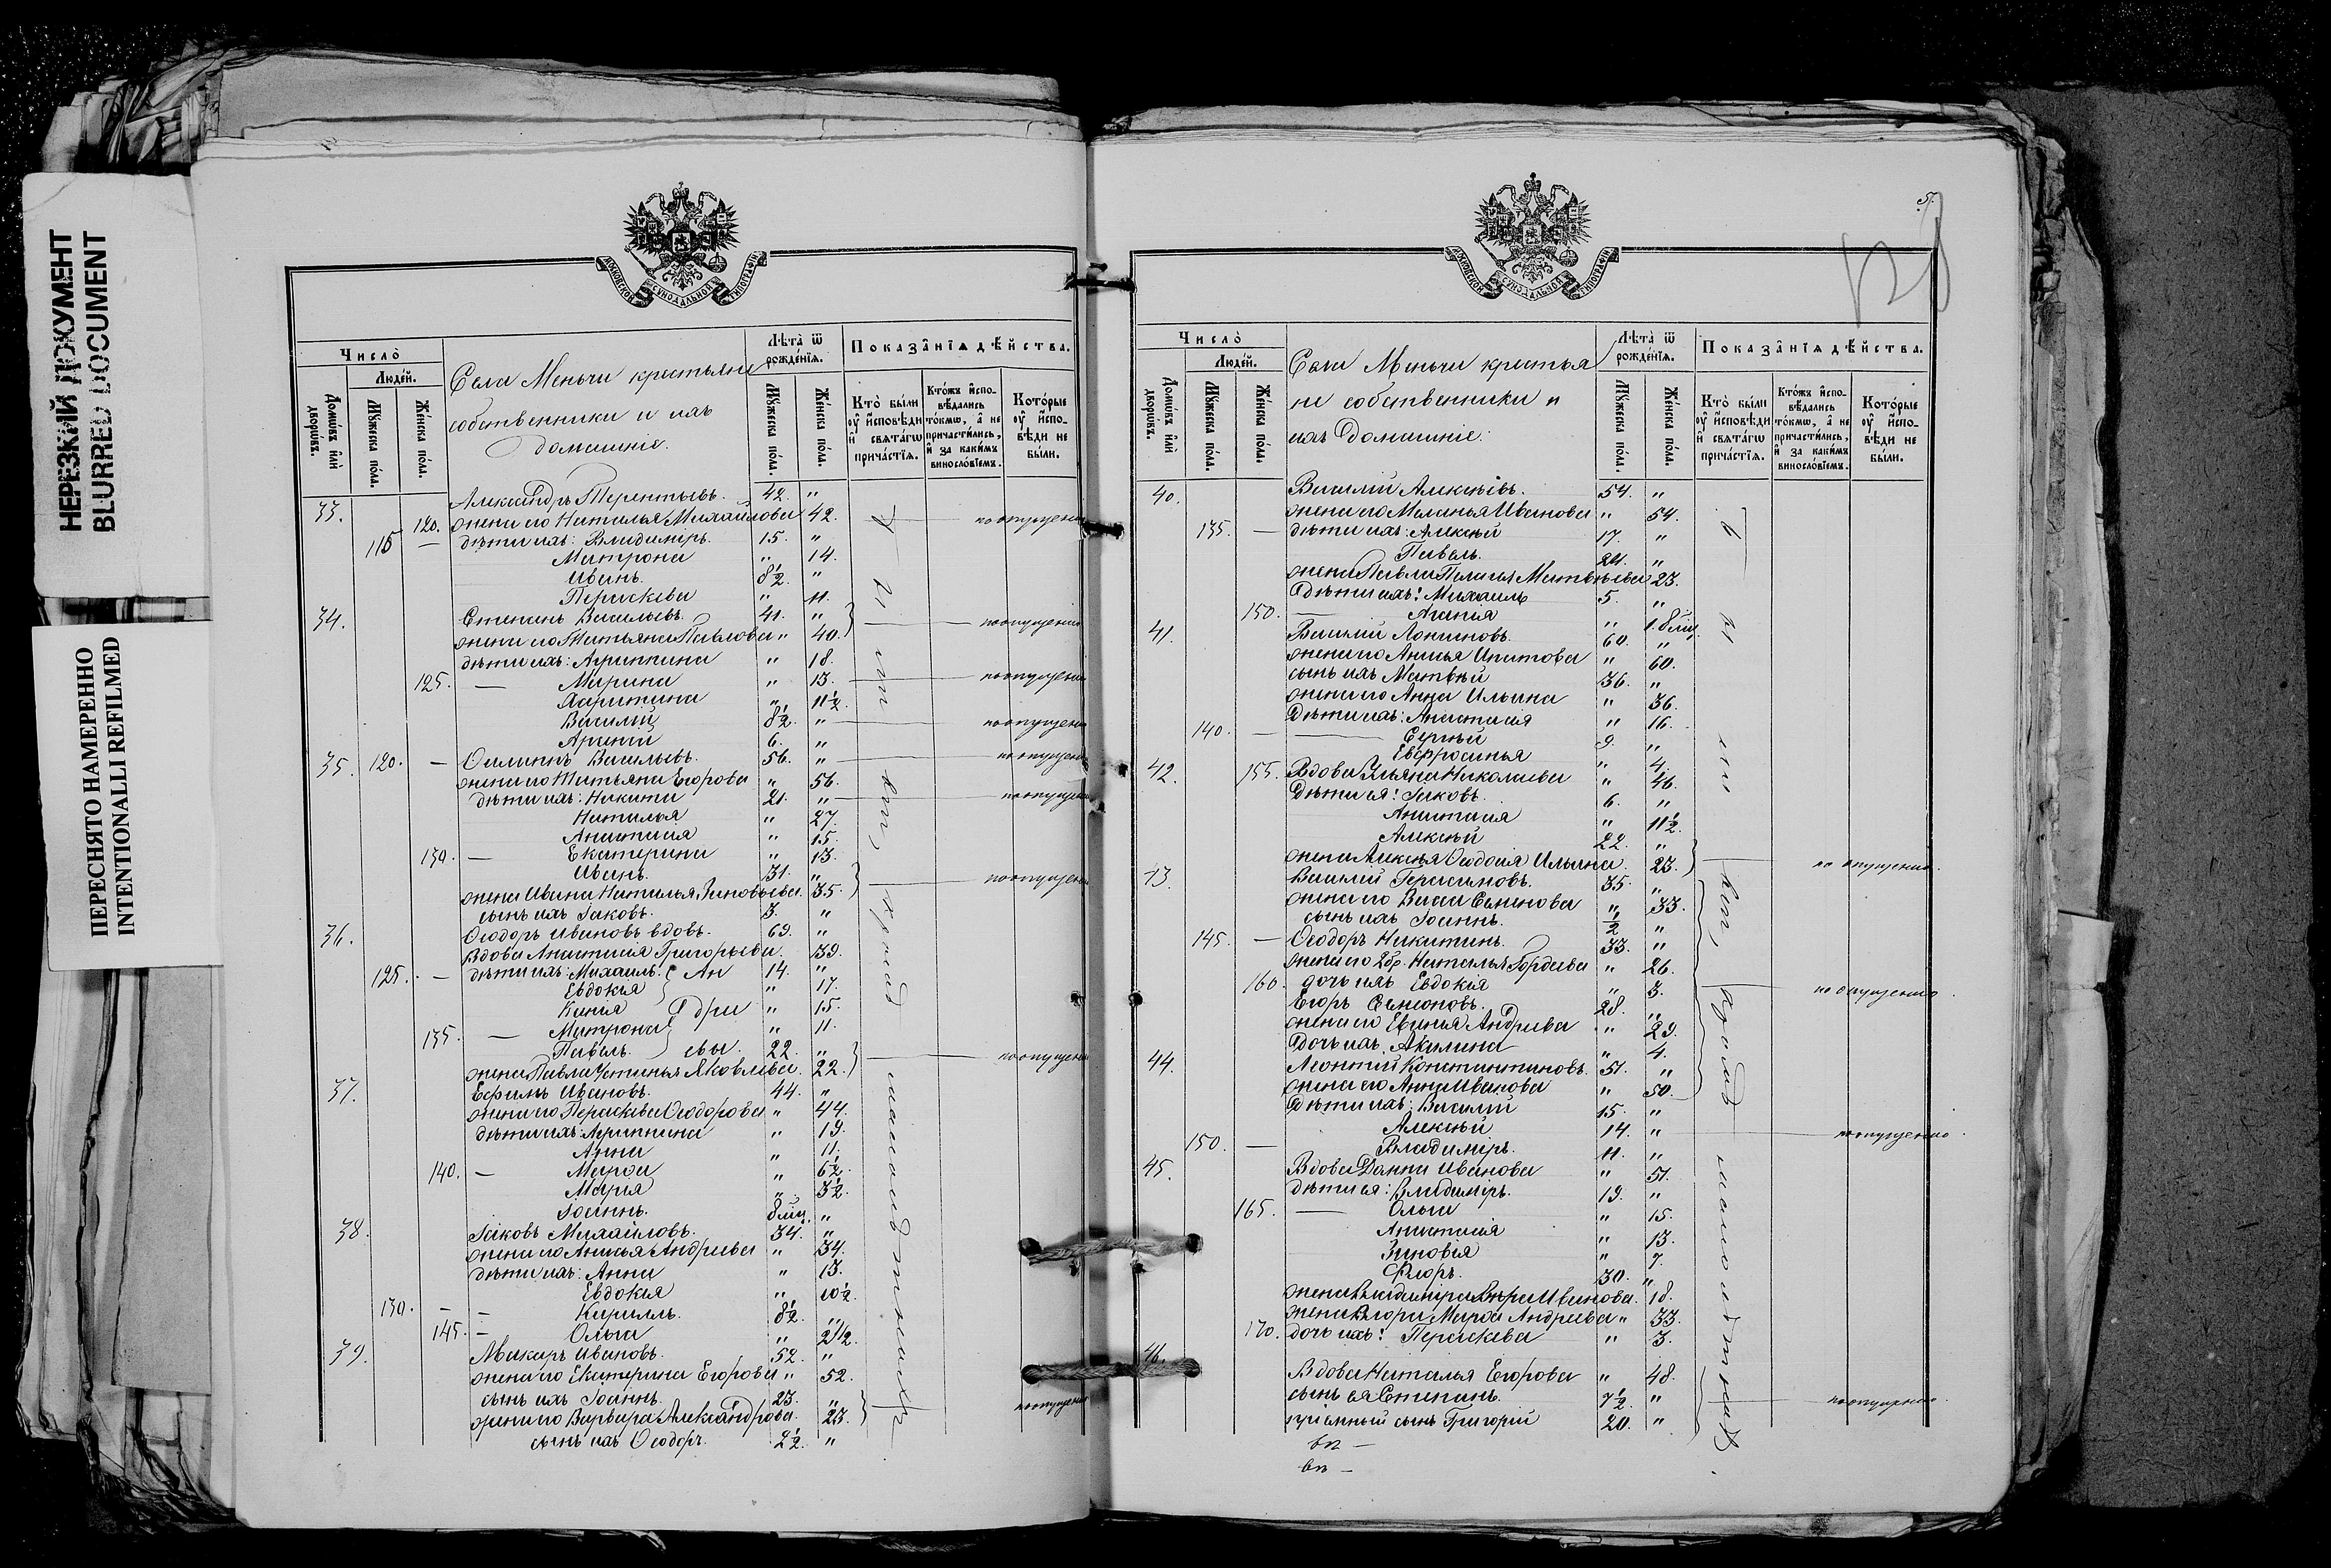 НЕРЕЗКИЙ ДОКУМЕНТ
BLURRED DOCUMENT
ПЕРЕСНЯТО НАМЕРЕННО
INTENTIONALLI REFILMED
МОСКОВСКОЙ СУНОДАЛЬНОЙ ТИПОГРАФIИ
Число̀
Людéй.
Домѡ́въ и҆лѝ дворѡ́въ.
Мꙋ́жеска по́ла.
Же́нска по́ла.
Села Меньчи крестьяне
собственники и ихъ
домашніе.
Лѣта̀ ѿ рожде́нїѧ.
Мꙋ́жеска по́ла.
Же́нска по́ла.
Показа̑нїѧ дѣ́йства.
Кто̀ бы́ли оу҆ и҆сповѣ́ди и҆ свѧта́гѡ прича́стїѧ.
Кто́жъ и҆спо-вѣ́дались то́кмѡ, а҆ не причасти́лись, и҆ за каки́мъ винослóвїемъ.
Кото́рые оу҆ и҆спо-вѣ́ди не бы́ли.
33. Александръ Терентьевъ. 42. "
120. жена его Наталья Михайлова 42. по опущенію
115 — дѣти ихъ: Владиміръ. 15. "
Матрона " 14.
Иванъ. 8½. "
Параскева " 11.
34. Степанъ Васильевъ. 41. "
жена его Татьяна Павлова " 40. по опущенію
дѣти ихъ: Агриппина " 18.
125. — Марина " 13. по опущенію
Харитина " 11½.
Василій 8½. " по опущенію
Арсеній 6. "
35. 120. — Филиппъ Васильевъ. 56. " по опущенію
жена его Татьяна Егорова " 56.
дѣти ихъ: Никита 21. " по опущенію
Наталья " 27.
Анастасія " 15.
130. — Екатерина " 13.
Иванъ. 31. "
жена Ивана Наталья Зиновьева. 35. по опущенію
сынъ ихъ Іаковъ. 3. "
36. Ѳеодоръ Ивановъ вдовъ. 69. "
Вдова Анастасія Григорьева. 39.
125. — дѣти ихъ: Михаилъ. Ан 14. "
Евдокія " 17.
Ксенія дре " 15.
135. — Матрона " 11.
Павелъ. евы. 22. "
жена Павла Устинья Яковлева. 22. по опущенію
37. Ефимъ Ивановъ. 44. "
жена его Параскева Ѳеодорова " 44.
дѣти ихъ: Агриппина " 19.
Анна " 11.
140. — Марѳа " 6½.
Марія " 3½.
Іоаннъ. 8 мѣц. "
38. Іаковъ Михайловъ. 34. "
жена его Анисья Андреева " 34.
дѣти ихъ: Анна " 13.
Евдокія " 10½.
130. — Кириллъ. 8½. "
145. — Ольга " 2½.
39. Макаръ Ивановъ. 52. "
жена его Екатерина Егорова " 52.
сынъ ихъ Іоаннъ. 23. "
жена его Варвара Александрова. 23. по опущенію
сынъ ихъ Ѳеодоръ. 2½. "
У и сп. вѣт, кромѣ малолѣтнихъ
5.
Число̀
Людéй.
Домѡ́въ и҆лѝ дворѡ́въ.
Мꙋ́жеска по́ла.
Же́нска по́ла.
Села Меньчи крестья
не собственники и
ихъ домашніе:
Лѣта̀ ѿ рожде́нїѧ.
Мꙋ́жеска по́ла.
Же́нска по́ла.
Показа̑нїѧ дѣ́йства.
Кто̀ бы́ли оу҆ и҆сповѣ́ди и҆ свѧта́гѡ прича́стїѧ.
Кто́жъ и҆спо-вѣ́дались то́кмѡ, а҆ не причасти́лись, и҆ за каки́мъ винослóвїемъ.
Кото́рые оу҆ и҆спо-вѣ́ди не бы́ли.
40. Василій Алексѣевъ. 54. "
жена его Меланья Иванова " 54.
135. — дѣти ихъ: Алексѣй 17. "
Павелъ. 24. "
жена Павла Пелагія Матвѣева 23.
дѣти ихъ: Михаилъ 5. "
150. — Агапія " 1. 8 мѣц.
41. Василій Лонгиновъ. 60. "
жена его Анисья Ипатова " 60.
сынъ ихъ Матвѣй 36. "
жена его Анна Ильина " 36.
дѣти ихъ: Анастасія " 16.
140. — Сергѣй 9. "
Евфросинья " 4.
42. 155. Вдова Ульяна Николаева " 46.
дѣти ея: Іаковъ. 6. "
Анастасія " 11½.
Алексѣй 22. "
жена Алексѣя Ѳеодосія Ильина. 23. по опущенію.
43. Василій Герасимовъ. 35. "
жена его Васса Семенова " 33.
сынъ ихъ Іоаннъ. ½ "
145. — Ѳеодоръ Никитинъ. 33. "
жена его 2 бр. Наталья Гордѣева " 26.
160. дочь ихъ Евдокія " 3. по опущенію.
Егоръ Семеновъ. 28. "
жена его Евгенія Андреева " 29.
дочь ихъ Акилина " 4.
44. Леонтій Константиновъ. 51. "
жена его Анна Иванова " 50.
дѣти ихъ: Василій 15. "
Алексѣй 14. " по опущенію.
150. — Владиміръ. 11. "
45. Вдова Иванова " 51.
дѣти ея: Владиміръ. 19. "
165. — Ольга " 15.
Анастасія " 13.
Зиновія " 7.
Флоръ. 30. "
жена Владиміра Иванова. 18.
жена Флора Марѳа Андреева " 33.
170. дочь ихъ: Параскева " 3.
46. Вдова Наталья Егорова " 48.
сынъ ея Степанъ. 7½ " по опущенію.
пріемный сынъ Григорій 20. "